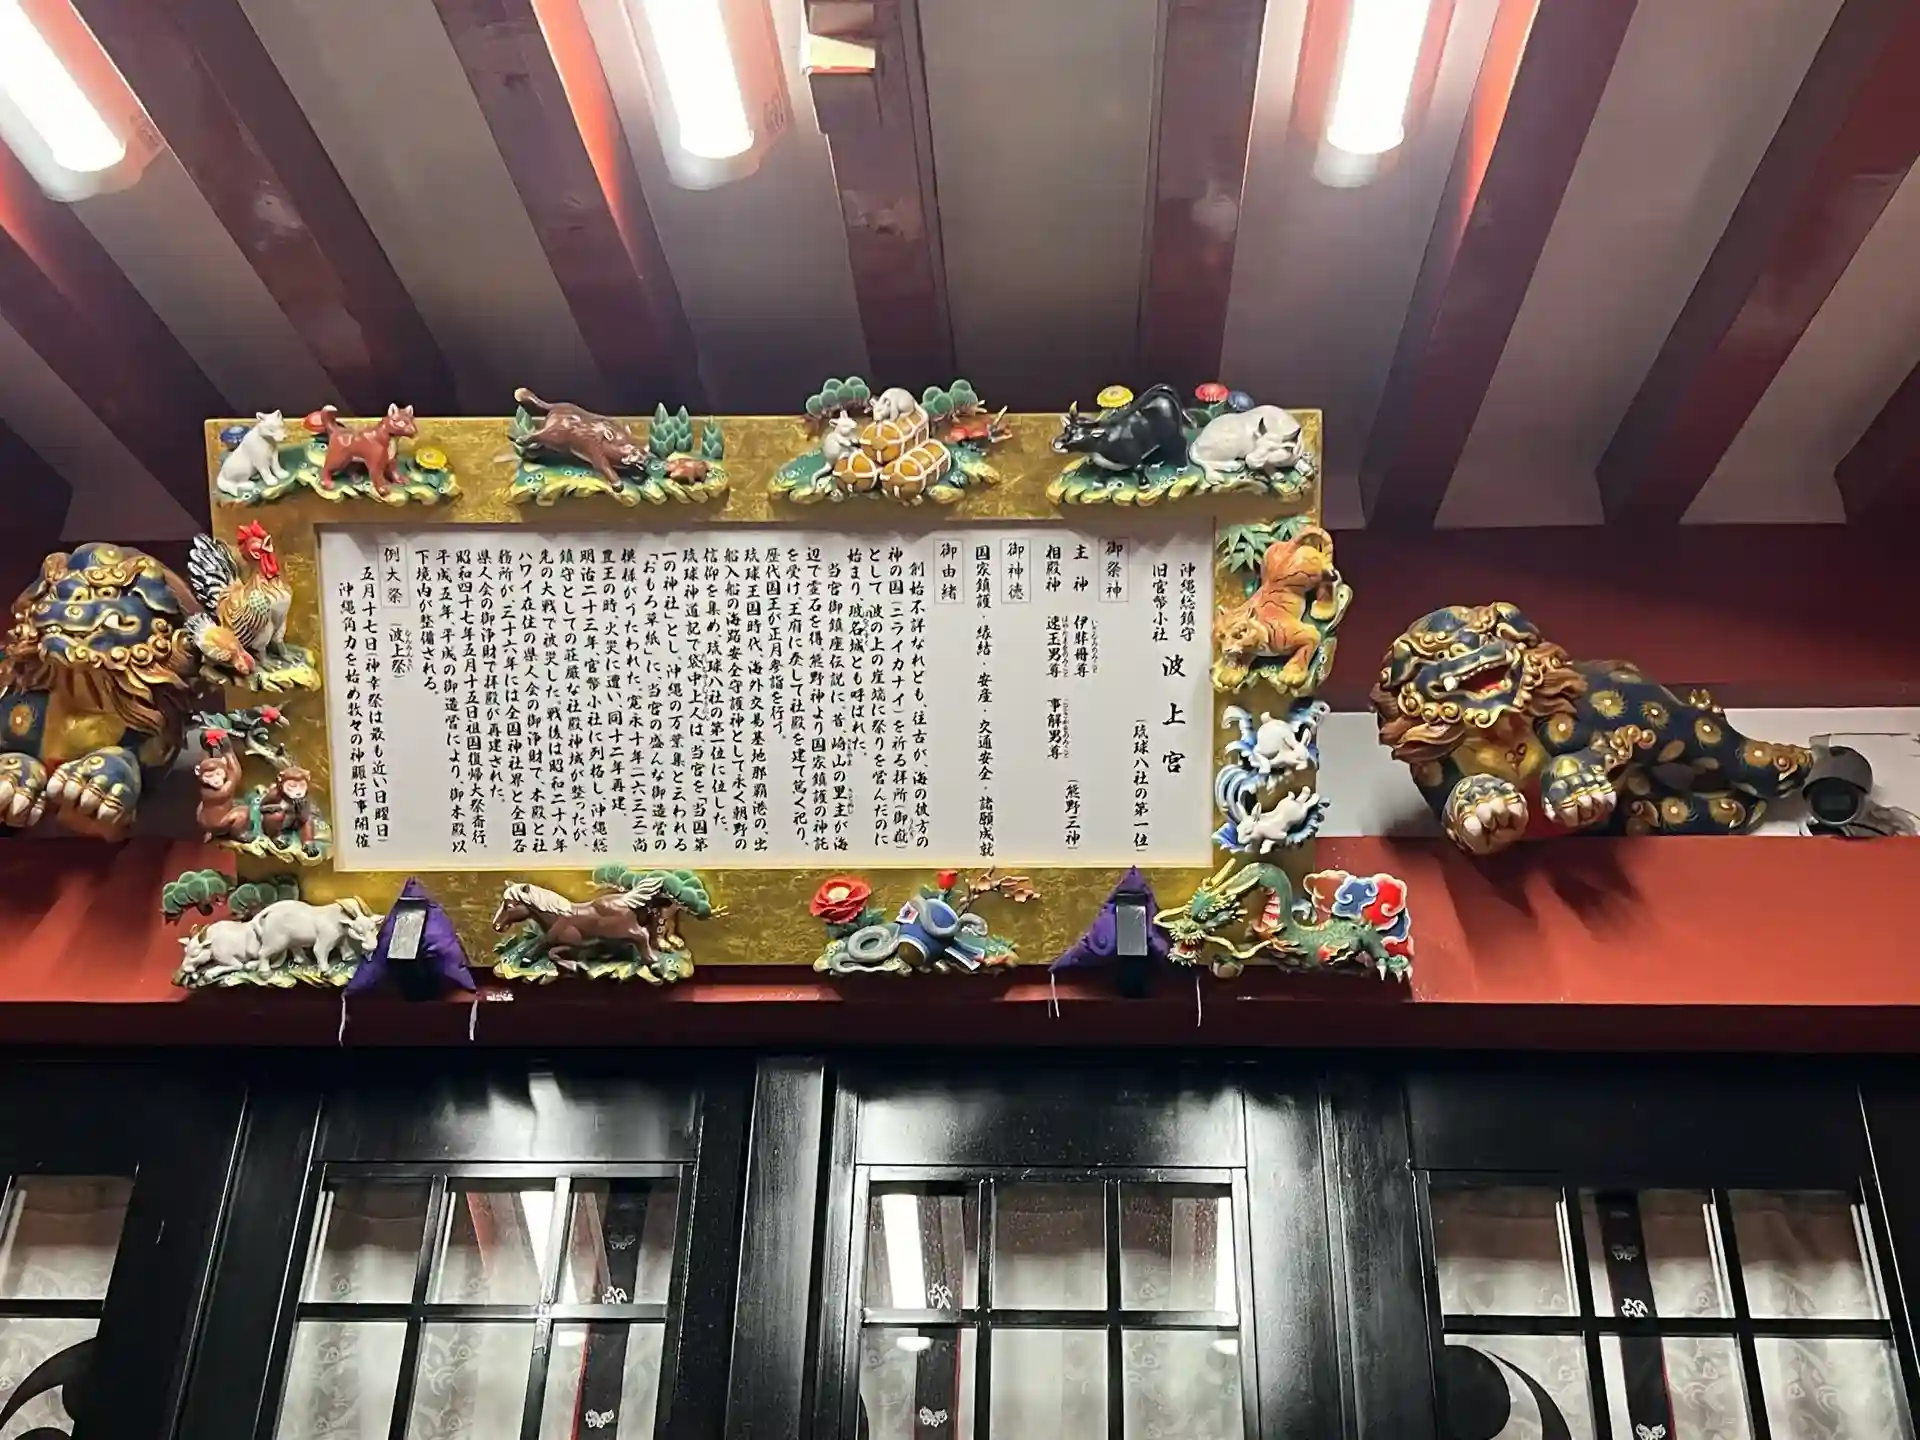 沖縄総鎮守
旧官幣小社
波上宮
(琉球八社の第一位)
御祭神
主神 伊弉冊尊
相殿神 速玉男尊 事解男尊
(熊野三神)
御神徳
国家鎮護・縁結・安産・交通安全・諸願成就
御由緒
創始不詳なれども、往古が、海の彼方の
神の国(ニライカナイ)を祈る拝所(御嶽)
として 波の上の崖端に祭りを営んだのに
始まり、波名城とも呼ばれた。
当宮御鎮座伝説に、昔、崎山の里主が海
辺で霊石を得、熊野神より国家鎮護の神託
を受け、王府に奏して社殿を建て篤く祀り、
歴代国王が正月参詣を行う。
琉球王国時代、海外交易基地那覇港の、出
船入船の海路安全守護神として永く朝野の
信仰を集め、琉球八社の第一位に位した。
琉球神道記で袋中上人は、当宮を「当国第
一の神社」とし、沖縄の万葉集と云われる
「おもろ草紙」に、当宮の盛んな御造営の
模様がうたわれた。寛永十年(一六三三)尚
豊王の時、火災に遭い、同十二年再建。
明治二十三年、官幣小社に列格し、沖縄総
鎮守としての荘厳な社殿神域が整ったが、
先の大戦で被災した。戦後は昭和二十八年
ハワイ在住の県人会の御浄財で、本殿と社
務所が、三十六年には全国神社界と全国各
県人会の御浄財で拝殿が再建された。
昭和四十七年五月十五日祖国復帰大祭斎行。
平成五年、平成の御造営により、御本殿以
下境内が整備される。
例大祭 (波上祭)
五月十七日(神幸祭は最も近い日曜日)
沖縄角力を始め数々の神賑行事開催